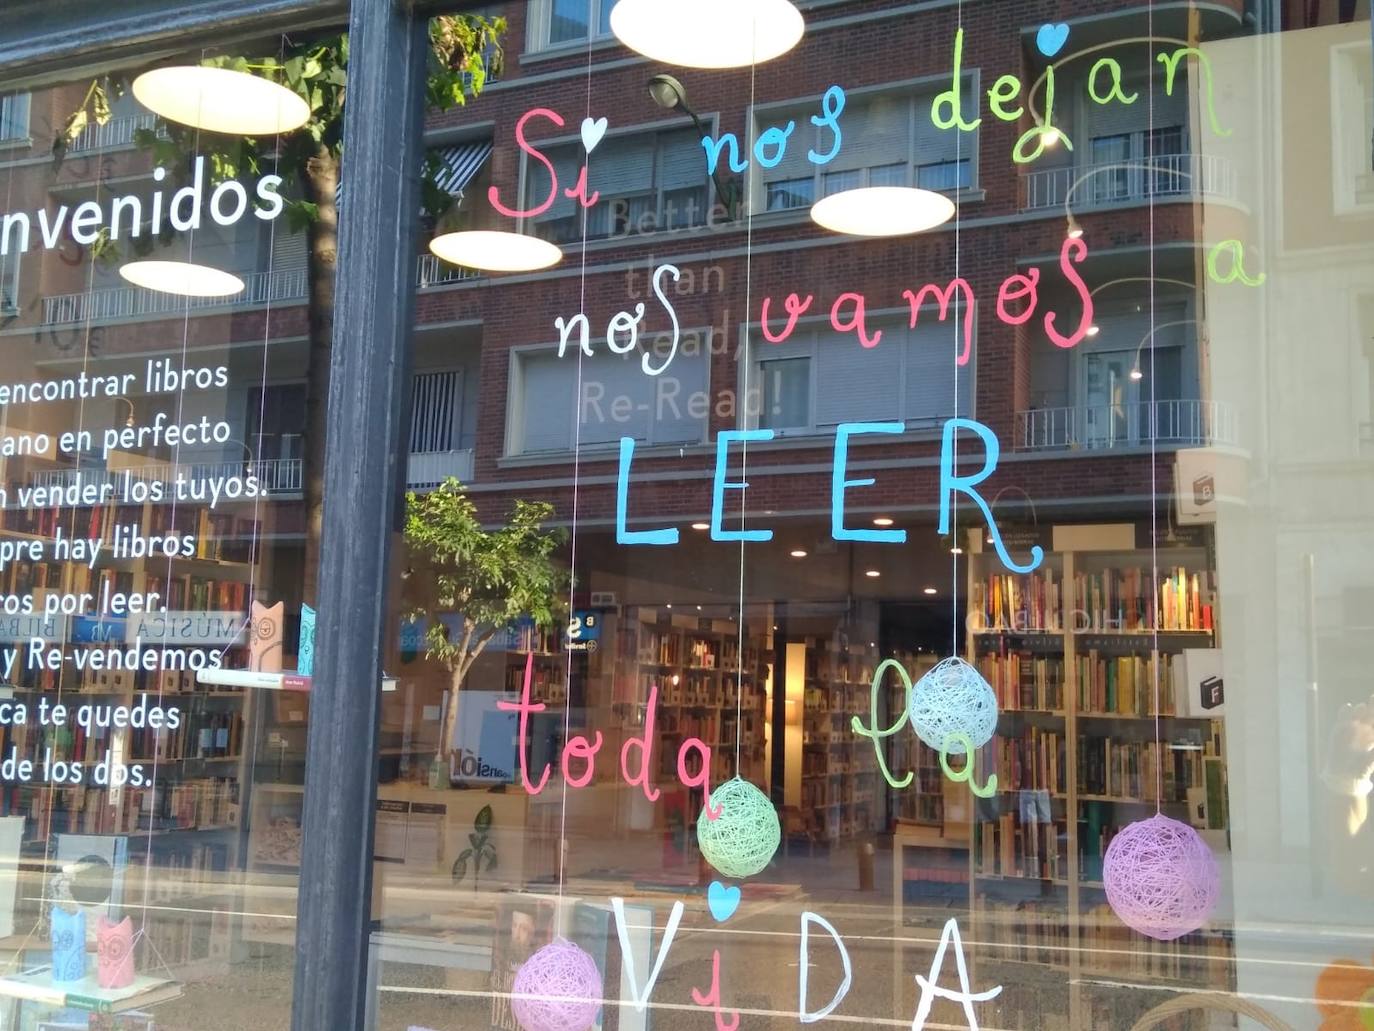 nvenidos
encontrar libros
ano en perfecto
n vender los tuyos.
pre hay libros
ros por leer.
y Re-vendemos
ca te quedes
de los dos.
Si nos dejan
nos vamos a
LEER
toda la
ViDA
Better
than
Read,
Re-Read!
MÚSICA
BILBA
B
F